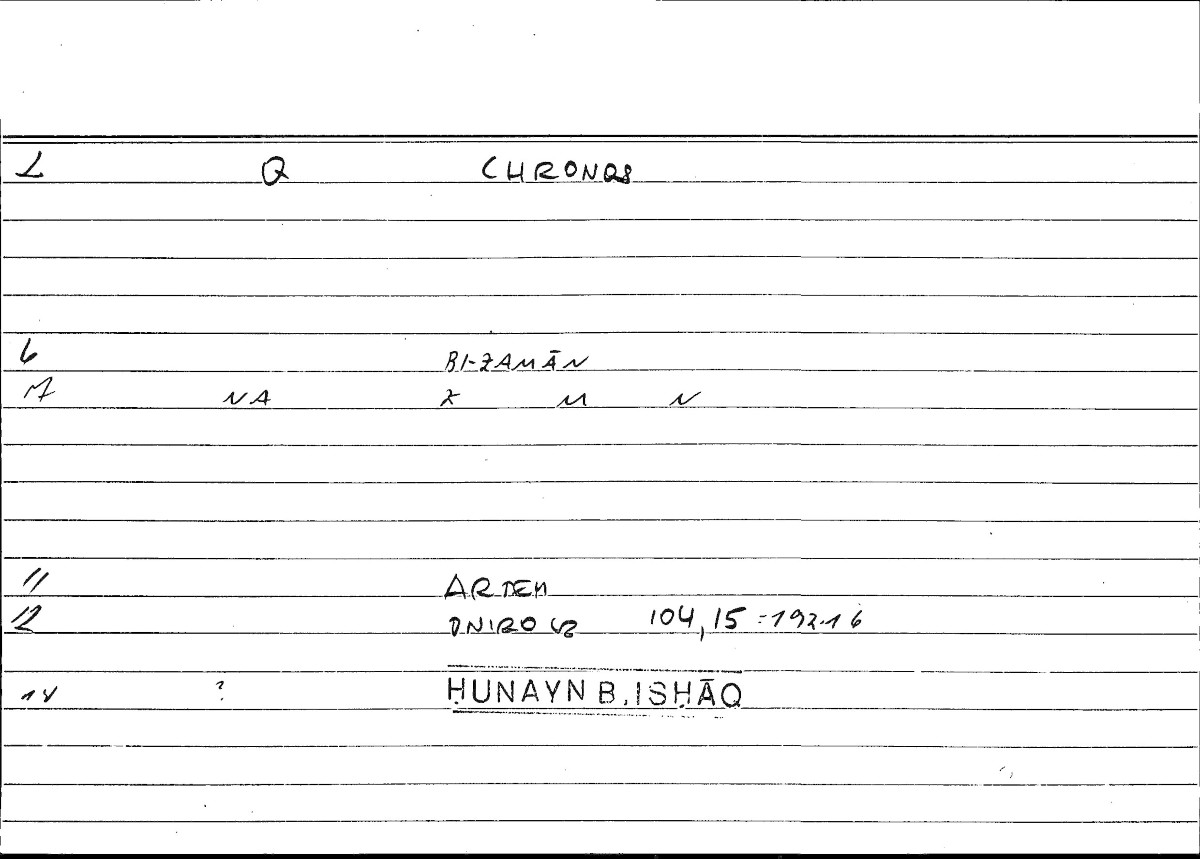 1 Q CHRONOS
6 BI-ZAMĀN
7 NA Z M N
11 ARTEM
12 ONIROCR 104,15 = 192.16
14 ? ḤUNAYN B. ISḤĀQ